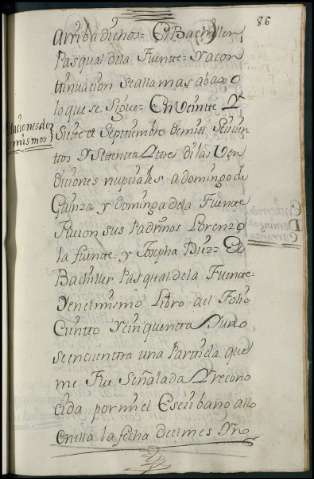 86
arriba dichos= El Bachiller
Pasqual dela Fuente= Y a con
tinuacion se alla mas abaxo
lo que se Sigue= En veinte Y
Siete de Septiembre de mil Seicien
tos Y Setenta Y tres di las Ven
diciones nupciales a domingo de
Gainza y dominga dela Fuente
Fueron sus Padrinos Lorenzo
la fuente y Josepha Diez= El
Bachiller Pasqual dela Fuente=
Y en el mismo Libro al Folio
Ciento Y cinquenta Y uno
se encuentra una Partida que
me Fue Señalada Y recono
cida por mi el Escribano
en ella la fecha de mes